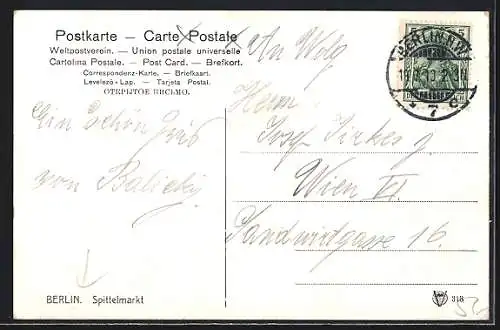 Postkarte — Carte Postale
Weltpostverein. — Union postale universelle
Cartolina Postale. — Post Card. — Brefkort.
Correspondenz-Karte. — Briefkaart.
Levelező-Lap. — Tarjeta Postal.
ОТКРЫТОЕ ПИСЬМО.
An
BERLIN N.W.
* 7
Herrn
Ein schön
Josef
von
Wien VI
Sandwirtgasse 16.
BERLIN. Spittelmarkt
318